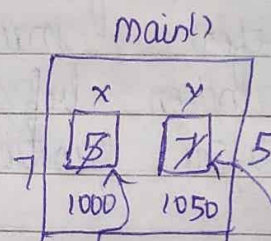 main()
x y
7 5 7 5
1000 1050